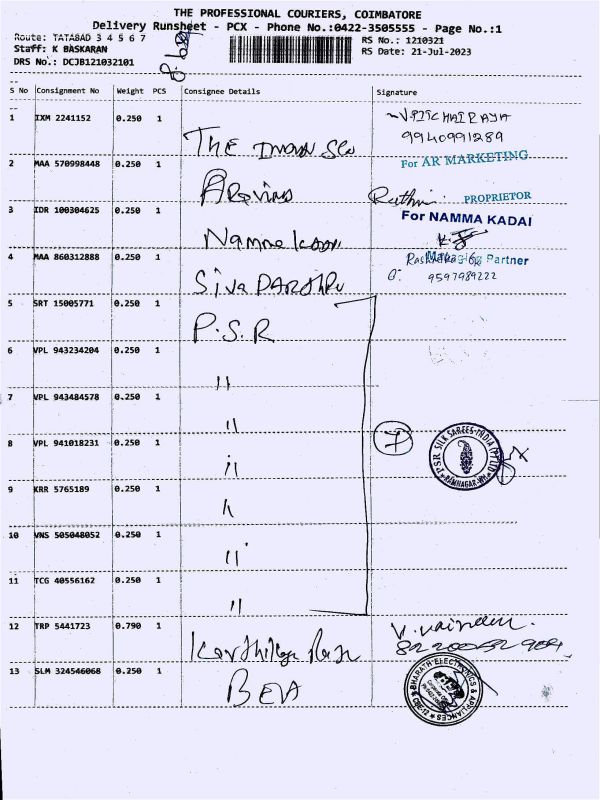 THE PROFESSIONAL COURIERS, COIMBATORE
Delivery Runsheet - PCX - Phone No.:0422-3505555 - Page No.:1
Route: TATABAD 3 4 5 6 7
RS No.: 1210321
Staff: K BASKARAN
RS Date: 21-Jul-2023
DRS No.: DCJB121032101
S No Consignment No Weight PCS Consignee Details Signature
1 IXM 2241152 0.250 1 THE
9940991289
2 MAA 570998448 0.250 1 Aravind
For AR MARKETING
PROPRIETOR
3 IDR 100304625 0.250 1 Namma
For NAMMA KADAI
Managing Partner
4 MAA 860312888 0.250 1 Siva
9597989222
5 SRT 15005771 0.250 1 P.S.R
6 VPL 943234204 0.250 1 "
7 VPL 943484578 0.250 1 "
8 VPL 941018231 0.250 1 "
7
PSR SILK SAREES INDIA (P) LTD
RAMNAGAR
9 KRR 5765189 0.250 1 "
10 VNS 505048052 0.250 1 "
11 TCG 40556162 0.250 1 "
12 TRP 5441723 0.790 1
13 SLM 324546068 0.250 1 BEA
BHARATH ELECTRONICS & APPLIANCES
CBE-12